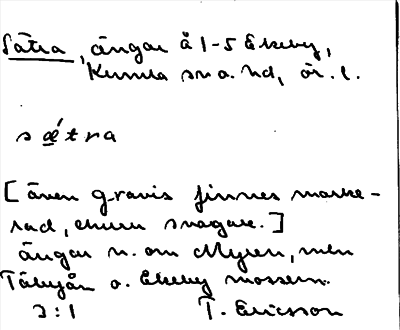 Sätra, ängar å 1-5 Ekeby,
Kumla sn o. hd, ör. l.
s ǽ t r a
[även gravis finnes marke-
rad, ehuru svagare.]
ängar n. om Myren, men
Täbyån o. Ekeby mossen.
3:1 T. Ericsson